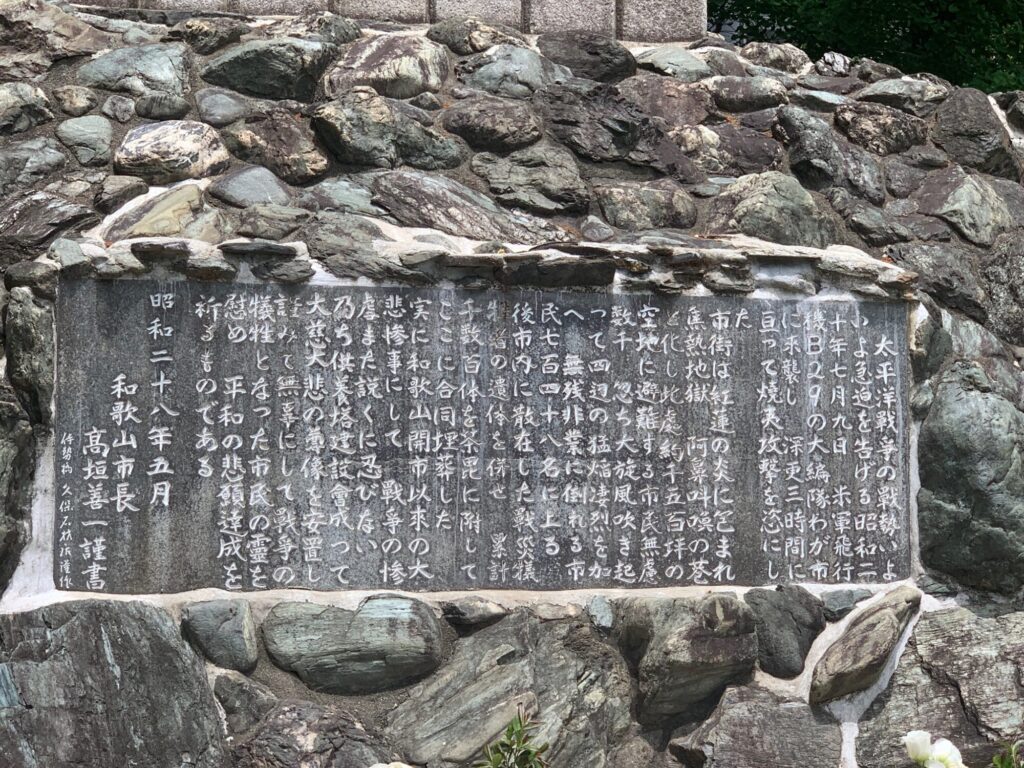 太平洋戰爭の戰勢いよ
いよ急迫を告げる昭和二
十年七月九日　米軍飛行
機B29の大編隊わが市
に來襲し　深更三時間に
亘って燒夷攻擊を恣にし
た
市街は紅蓮の炎に包まれ
焦熱地獄　阿鼻叫喚の巷
と化し此處約千五百坪の
空地に避難する市民無慮
数千　忽ち大旋風吹き起
って四辺の猛焔凄烈を加
へ　無残非業に倒れる市
民七百四十八名に上る
後市内に散在した戰災犠
牲者の遺体を併せ　累計
千数百体を荼毘に附して
ここに合同埋葬した
実に和歌山開市以來の大
悲惨事にして　戰爭の惨
虐また説くに忍びない
乃ち供養塔建設會成って
大慈大悲の尊像を安置し
謹みて無辜にして戰爭の
犠牲となった市民の靈を
慰め　平和の悲願達成を
祈るものである
昭和二十八年五月
和歌山市長
高垣善一謹書